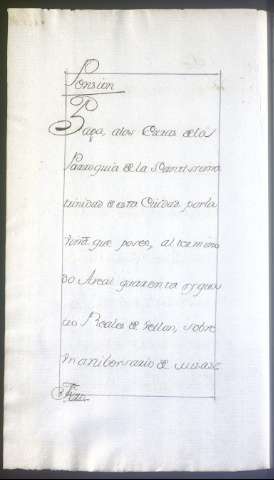 Pension
Paga, alos Curas dela
Parroquia de la Santisima
trinidad de esta Ciudad por la
que posee, al termino
Do Areal quarenta y qua
ro Reales de Vellon, sobre
Un anibersario de